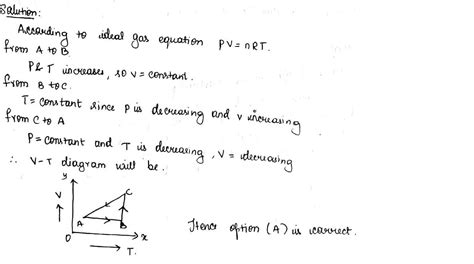 Solution:
According to ideal gas equation PV = nRT.
from A to B
P&T increases, so V = constant.
from B to C.
T = constant since P is decreasing and V increasing
from C to A
P = constant and T is decreasing, V = decreasing
∴ V-T diagram will be.
y
V
C
A
B
O
x
T.
Hence option (A) is correct.